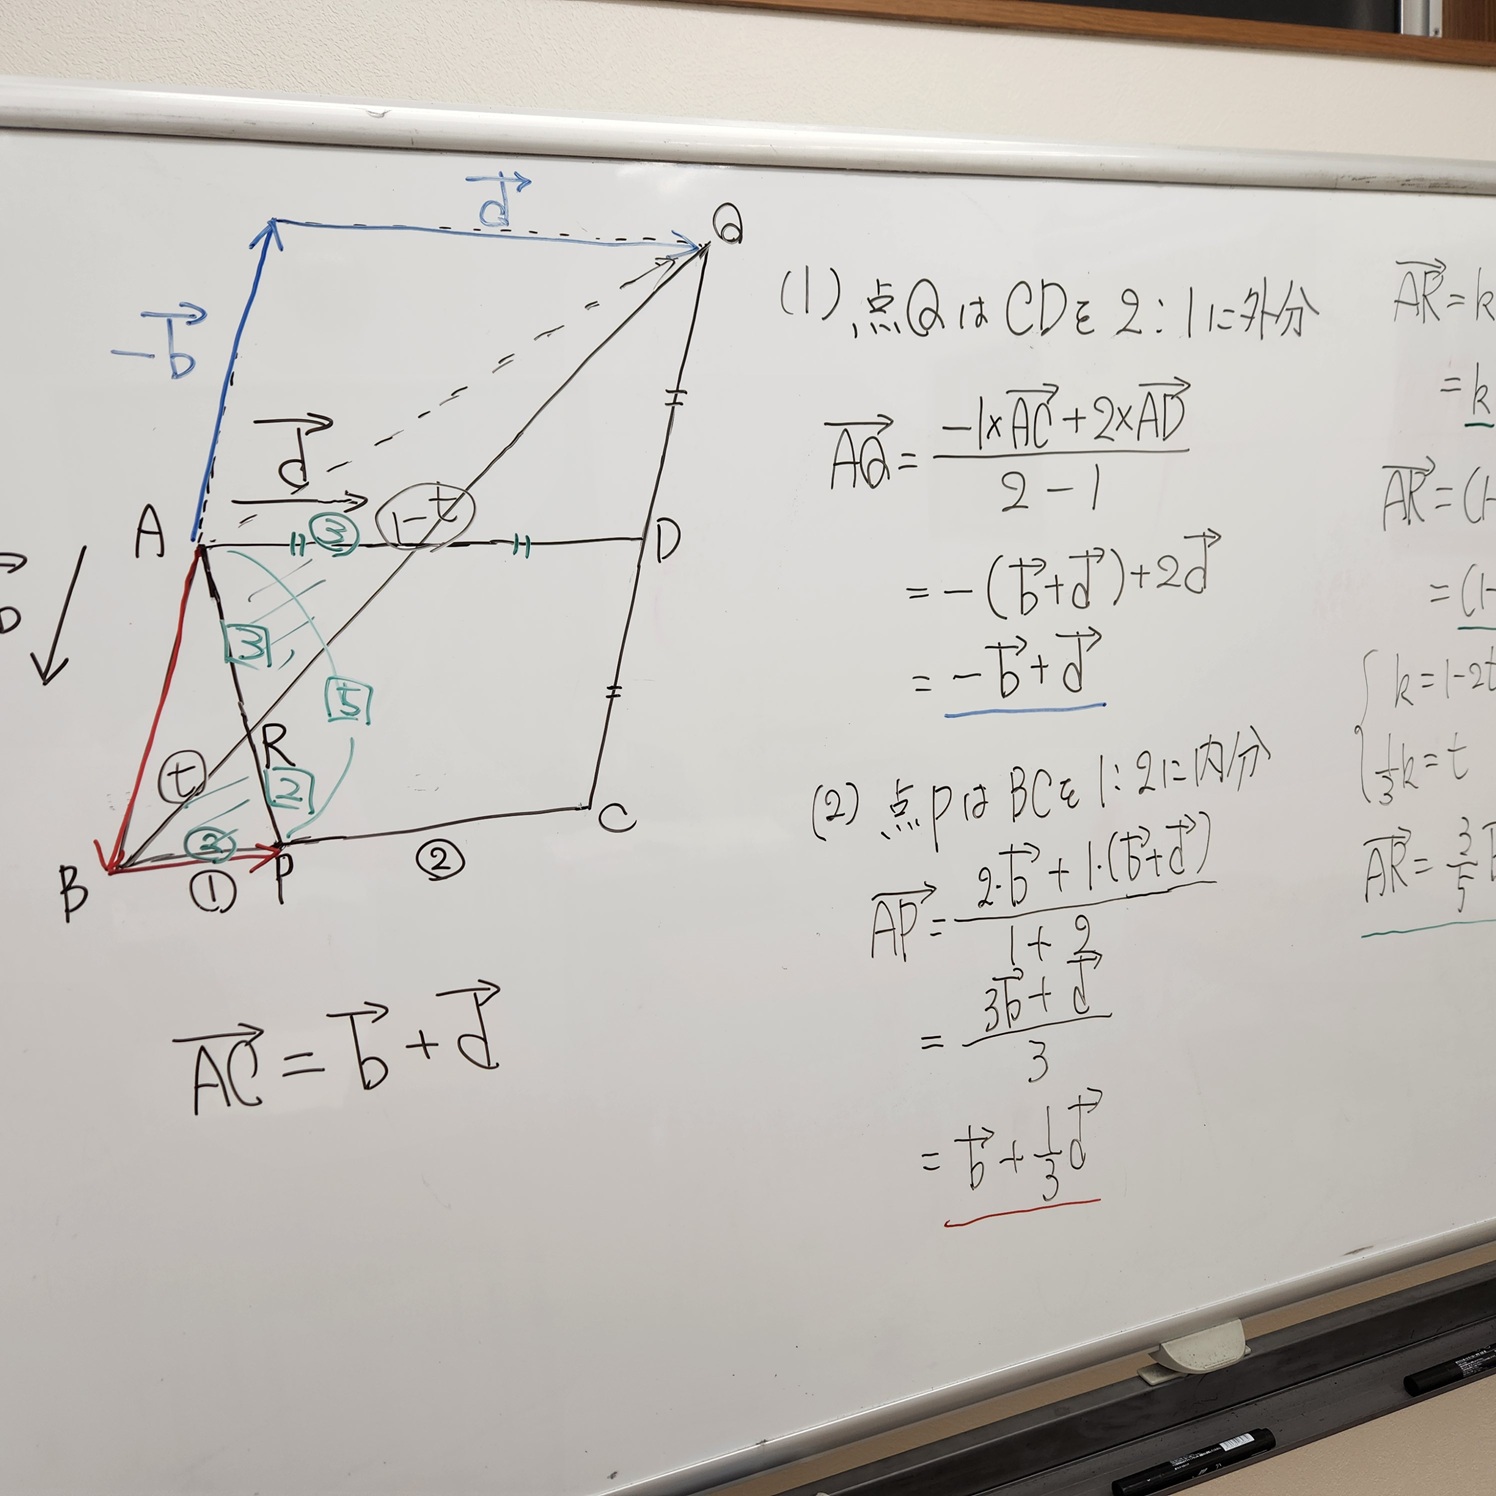 d⃗
Q
-b⃗
d⃗
A
③
1-t
D
3
5
R
t
2
③
B
①
P
②
C
AC⃗ = b⃗ + d⃗
(1) 点QはCDを2:1に外分
AQ⃗ = (-1×AC⃗ + 2×AD⃗) / (2-1)
= -(b⃗+d⃗)+2d⃗
= -b⃗+d⃗
(2) 点PはBCを1:2に内分
AP⃗ = (2·b⃗ + 1·(b⃗+d⃗)) / (1+2)
= (3b⃗+d⃗) / 3
= b⃗ + 1/3 d⃗
AR⃗ = k
= k
AR⃗ = (1-
= (1-
k = 1-2t
1/3 k = t
AR⃗ = 3/5